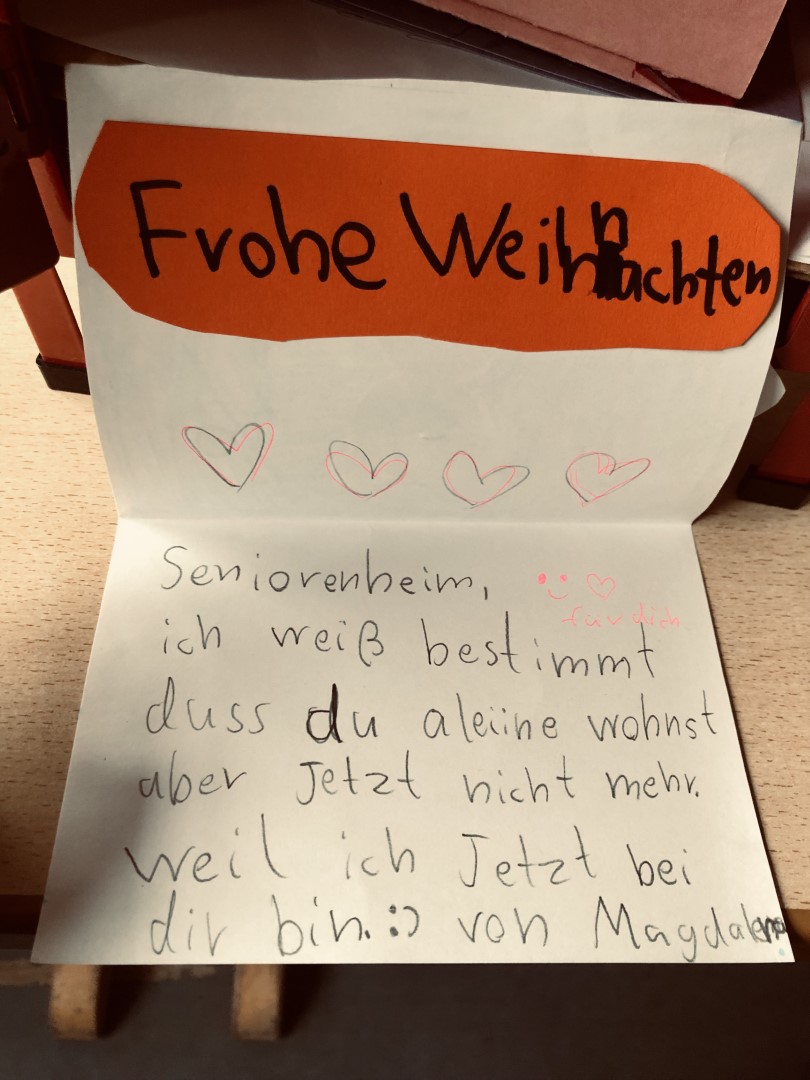 Frohe Weihnachten
Seniorenheim,
für dich
ich weiß bestimmt
duss du aleiine wohnst
aber Jetzt nicht mehr.
weil ich Jetzt bei
dir bin. :) von Magdalena